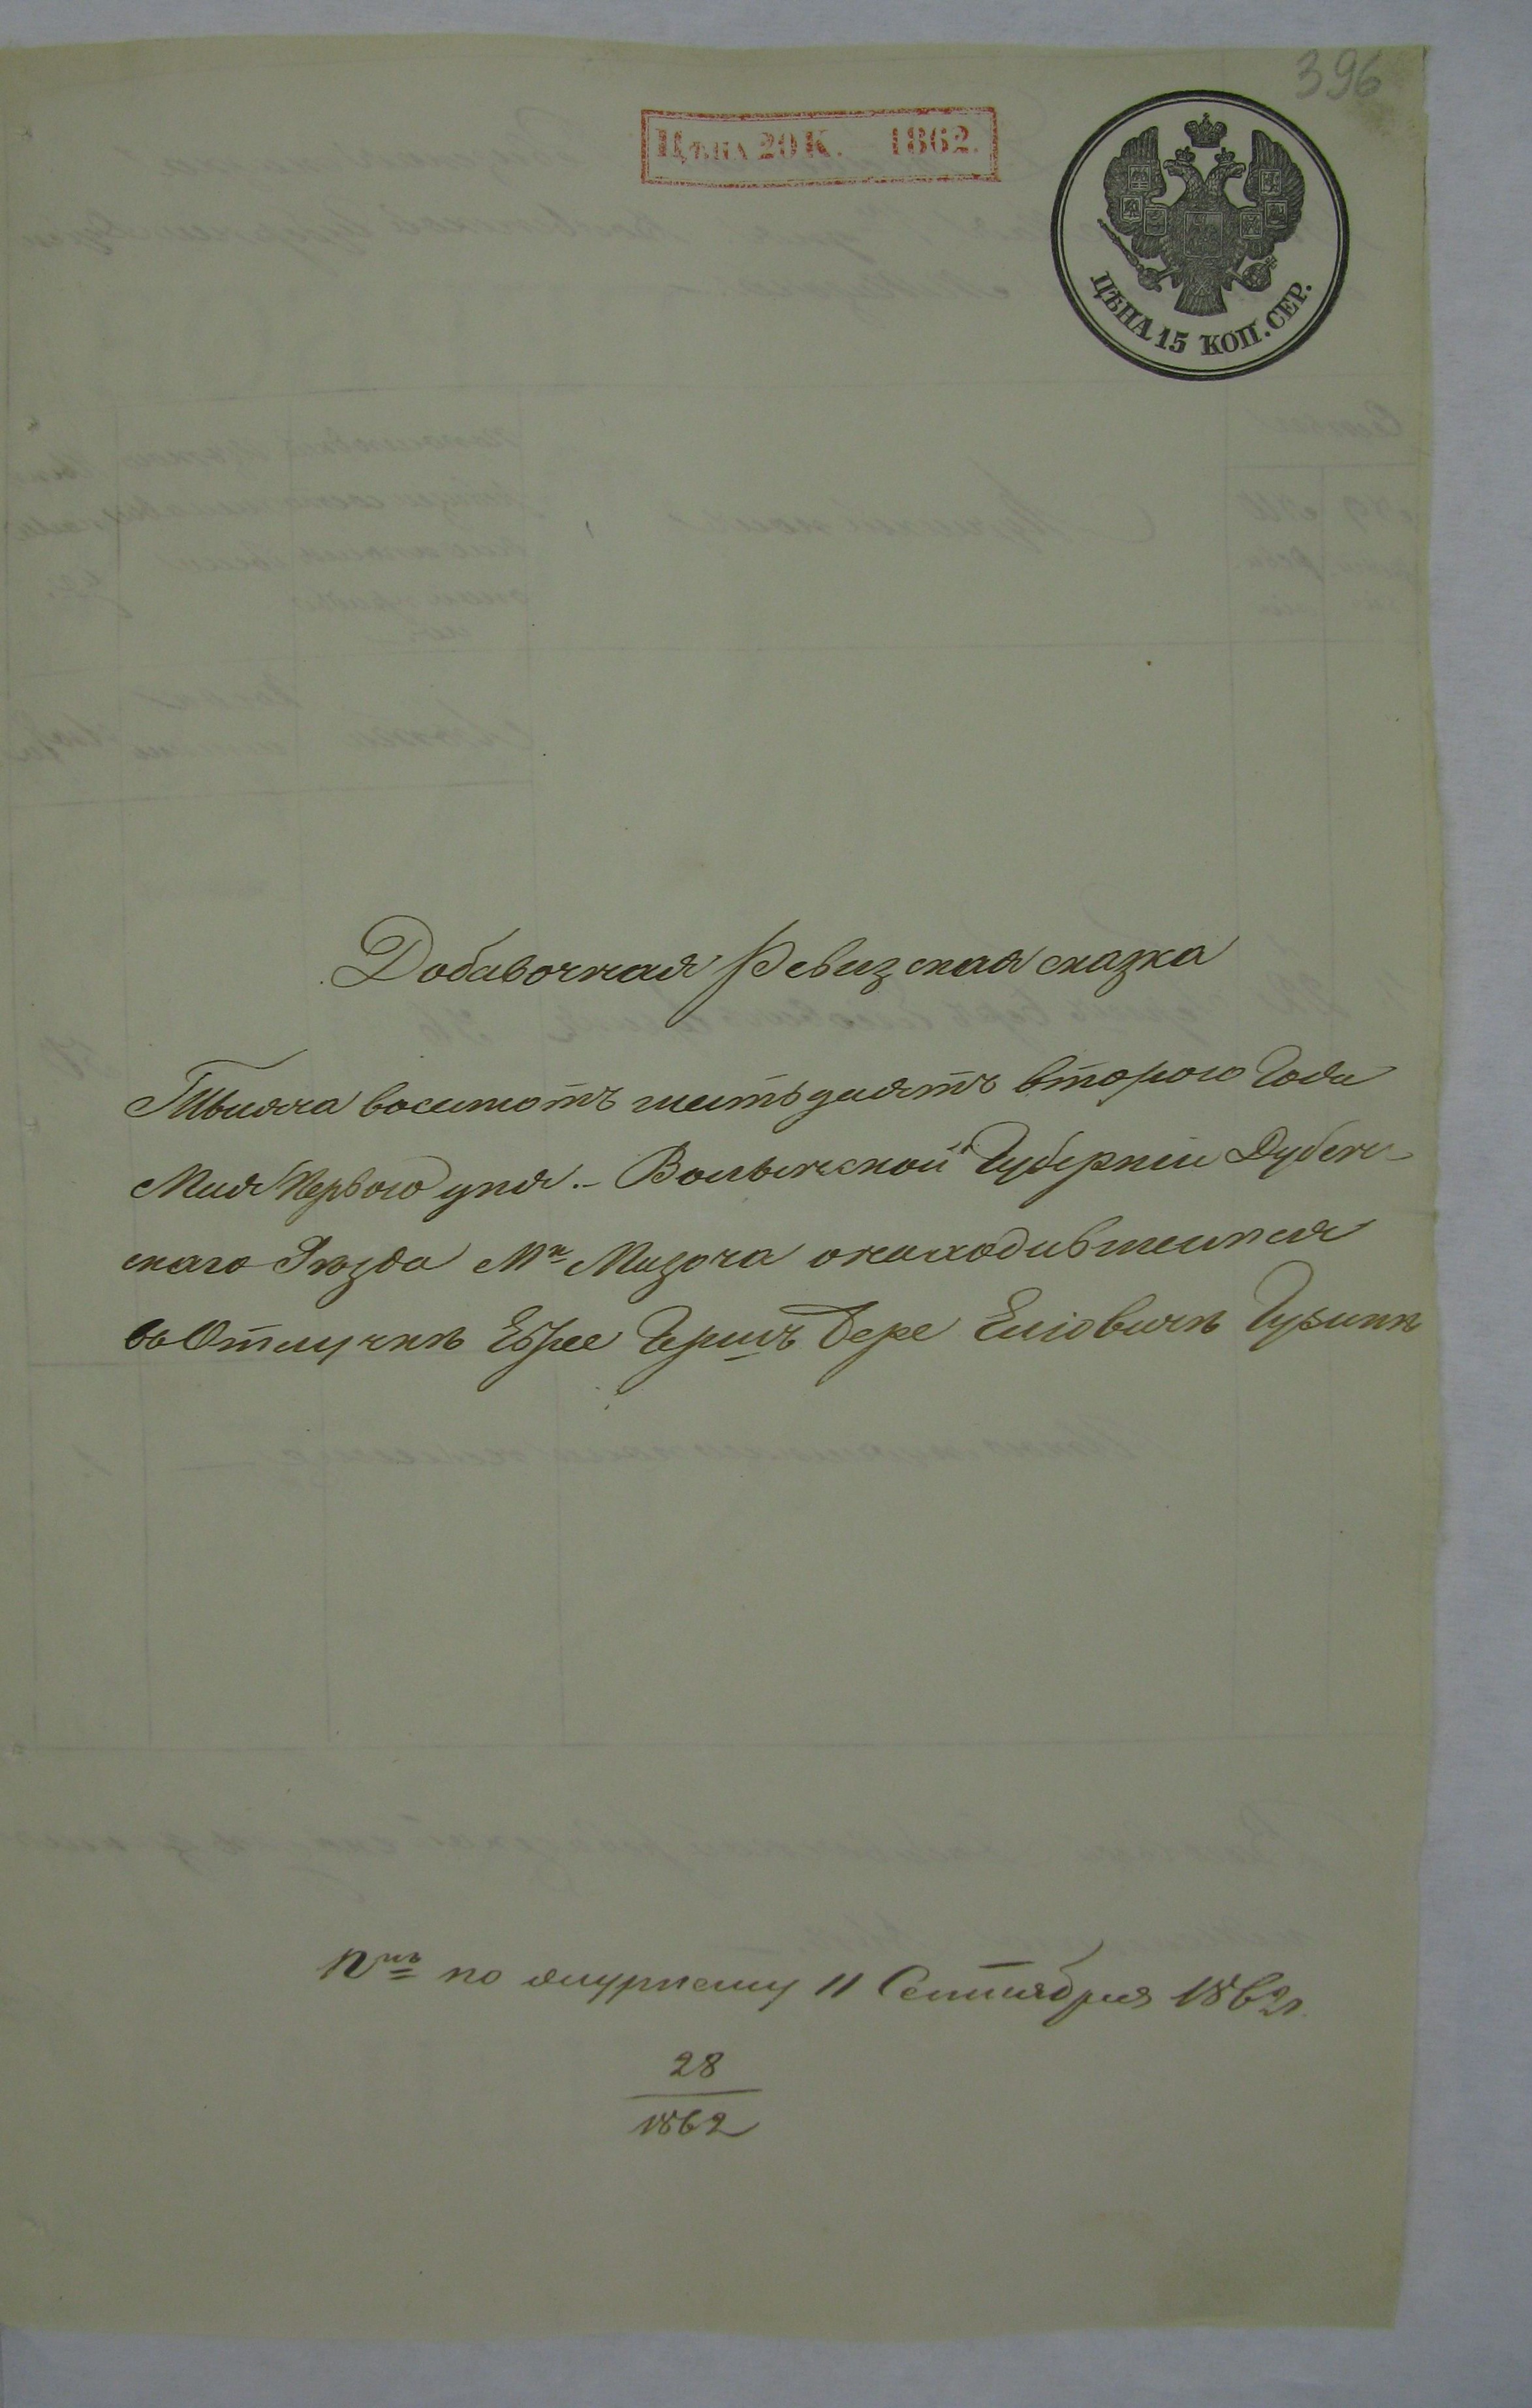 396
ЦѢНА 20 К. 1862.
ЦѢНА 15 КОП. СЕР.
Добавочная Ревизская сказка
Тысяча восемсотъ шестьдесятъ второго Года
Мая Первого дня.– Волынской Губерніи Дубен-
скаго Уѣзда М<sup>ка</sup> Мизоча о находившемся
въ Отлучкѣ Еврее Гершъ Бере Еліовичѣ Гузикѣ
по 11 Сентября 1862г.
28
1862